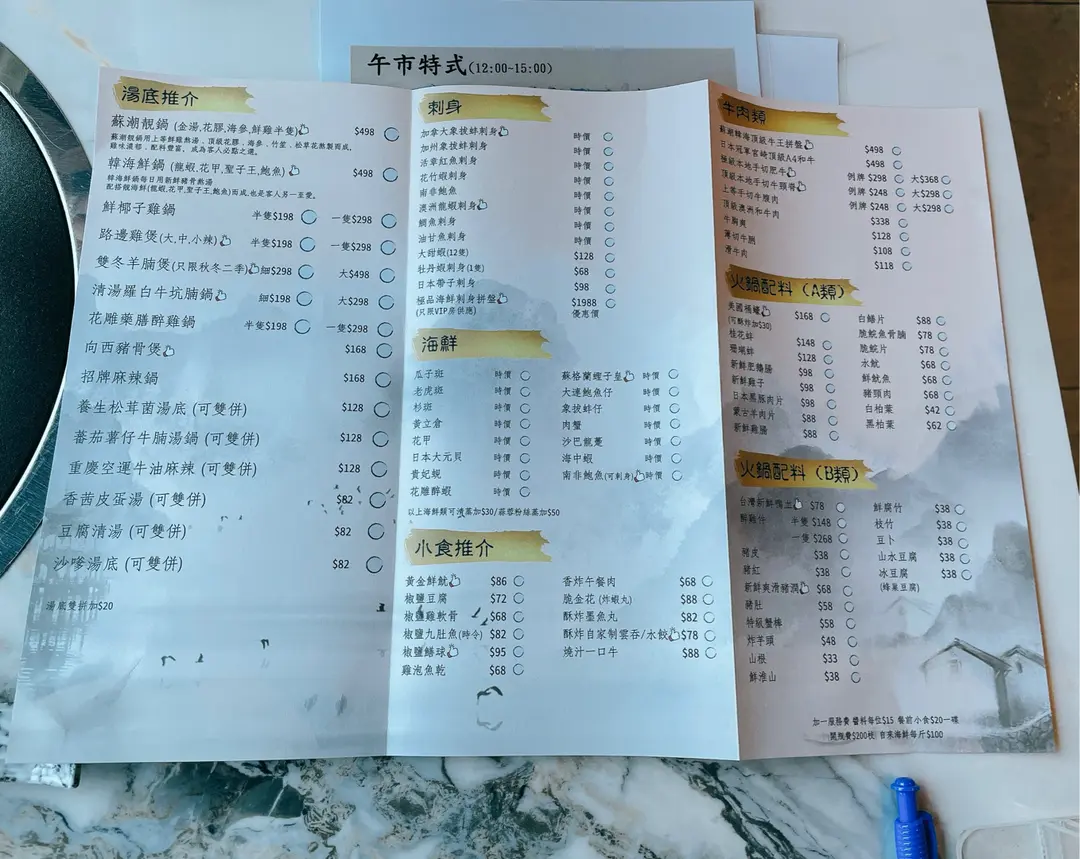 午市特式(12:00~15:00)
湯底推介
蘇潮靚鍋 (金湯,花膠,海參,鮮雞半隻) $498
蘇潮靚鍋用上等鮮雞熬湯﹐頂級花膠﹐海參﹐竹笙﹐松草花熬製而成﹐
雞味濃郁﹐配料豐富﹐成為客人必點之選。
韓海鮮鍋 (龍蝦,花甲,聖子王,鮑魚) $498
韓海鮮鍋每日用新鮮豬骨熬湯
配搭靚海鮮(龍蝦,花甲,聖子王,鮑魚)而成,也是客人另一至愛。
鮮椰子雞鍋 半隻$198 一隻$298
路邊雞煲(大,中,小辣) 半隻$198 一隻$298
雙冬羊腩煲(只限秋冬二季) 細$298 大$498
清湯羅白牛坑腩鍋 細$198 大$298
花雕藥膳醉雞鍋 半隻$198 一隻$298
向西豬骨煲 $168
招牌麻辣鍋 $168
養生松茸菌湯底 (可雙併) $128
蕃茄薯仔牛腩湯鍋 (可雙併) $128
重慶空運牛油麻辣 (可雙併) $128
香茜皮蛋湯 (可雙併) $82
豆腐清湯 (可雙併) $82
沙嗲湯底 (可雙併) $82
湯底雙拼加$20
刺身
加拿大象拔蚌刺身 時價
加州象拔蚌刺身 時價
活章紅魚刺身 時價
花竹蝦刺身 時價
南非鮑魚 時價
澳洲龍蝦刺身 時價
鯛魚刺身 時價
油甘魚刺身 時價
大甜蝦(12隻) $128
牡丹蝦刺身(1隻) $68
日本帶子刺身 $98
極品海鮮刺身拼盤 $1988
(只限VIP房供應) 優惠價
海鮮
瓜子斑 時價 蘇格蘭蟶子皇 時價
老虎斑 時價 大連鮑魚仔 時價
杉斑 時價 象拔蚌仔 時價
黃立倉 時價 肉蟹 時價
花甲 時價 沙巴龍躉 時價
日本大元貝 時價 海中蝦 時價
貴妃蜆 時價 南非鮑魚(可刺身) 時價
花雕醉蝦 時價
以上海鮮類可清蒸加$30/蒜蓉粉絲蒸加$50
小食推介
黃金鮮魷 $86 香炸午餐肉 $68
椒鹽豆腐 $72 脆金花 (炸蝦丸) $88
椒鹽雞軟骨 $68 酥炸墨魚丸 $82
椒鹽九肚魚(時令) $82 酥炸自家制雲吞/水餃 $78
椒鹽鱔球 $95 燒汁一口牛 $88
雞泡魚乾 $68
牛肉類
蘇潮韓海頂級牛王拼盤 $498
日本冠軍宮崎頂級A4和牛 $498
極級本地手切肥牛 例牌 $298 大$368
頂級本地手切牛頸脊 例牌 $248 大$298
上等手切牛腹肉 例牌 $248 大$298
頂級澳洲和牛肉 $338
牛胸爽 $128
薄切牛脷 $108
滑牛肉 $118
火鍋配料 (A類)
美國桶蠔 $168 白鱔片 $88
(可酥炸加$30) 脆鯇魚骨腩 $78
桂花蚌 $148 脆鯇片 $78
珊瑚蚌 $128 水魷 $68
新鮮肥鵝腸 $98 鮮魷魚 $68
新鮮雞子 $98 豬頸肉 $68
日本黑豚肉片 $98 白柏葉 $42
蒙古羊肉片 $88 黑柏葉 $62
新鮮雞腸 $88
火鍋配料 (B類)
台灣新鮮鴨血 $78 鮮腐竹 $38
鮮雞件 半隻 $148 枝竹 $38
一隻 $268 豆卜 $38
豬皮 $38 山水豆腐 $38
豬紅 $38 冰豆腐 $38
新鮮爽滑豬潤 $68 (蜂巢豆腐)
豬肚 $58
特級蟹棒 $58
炸芋頭 $48
山根 $33
鮮淮山 $38
加一服務費 醬料每位$15 餐前小食$20一碟
開瓶費$200枝 自來海鮮每斤$100